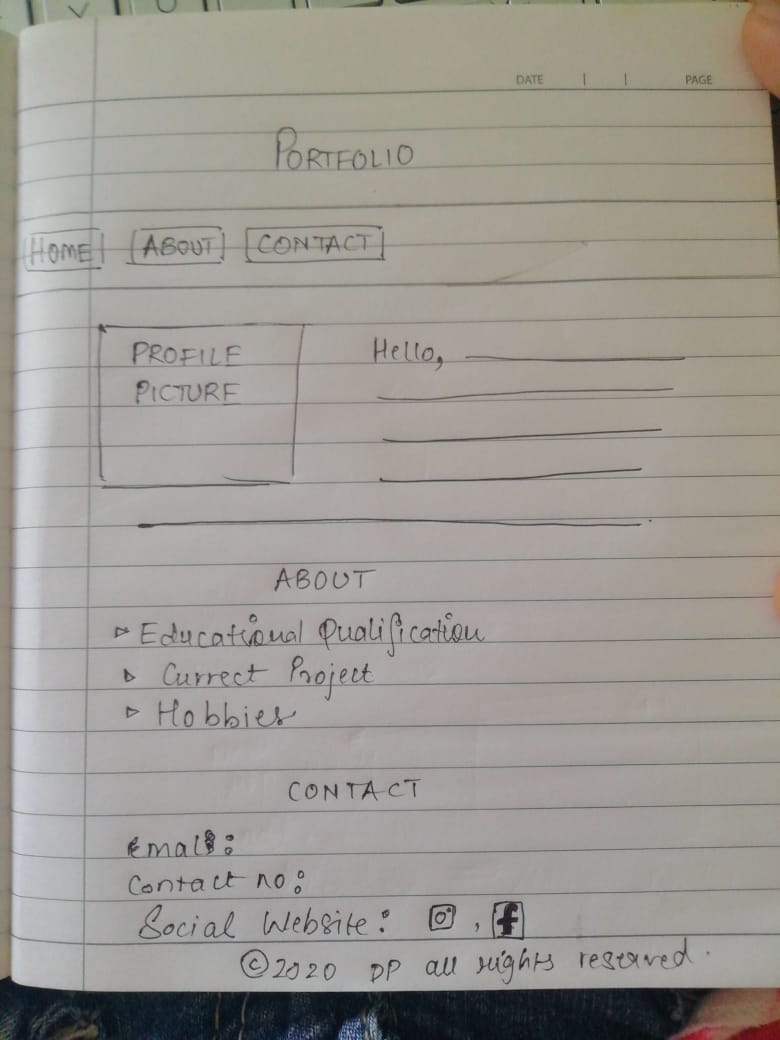 DATE | | PAGE
PORTFOLIO
HOME ABOUT CONTACT
PROFILE Hello,
PICTURE
ABOUT
▹ Educational Qualification
▹ Currect Project
▹ Hobbies
CONTACT
Email:
Contact no:
Social Website: , f
©2020 DP all rights reserved.